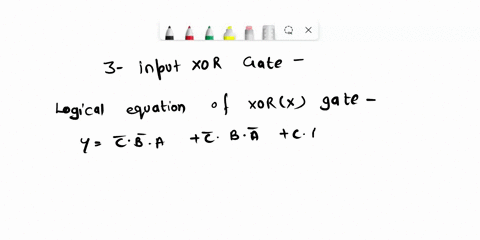 3- input XOR Gate -
Logical equation of XOR(X) gate -
y = C̅·B̅·A + C̅·B·A̅ + C·